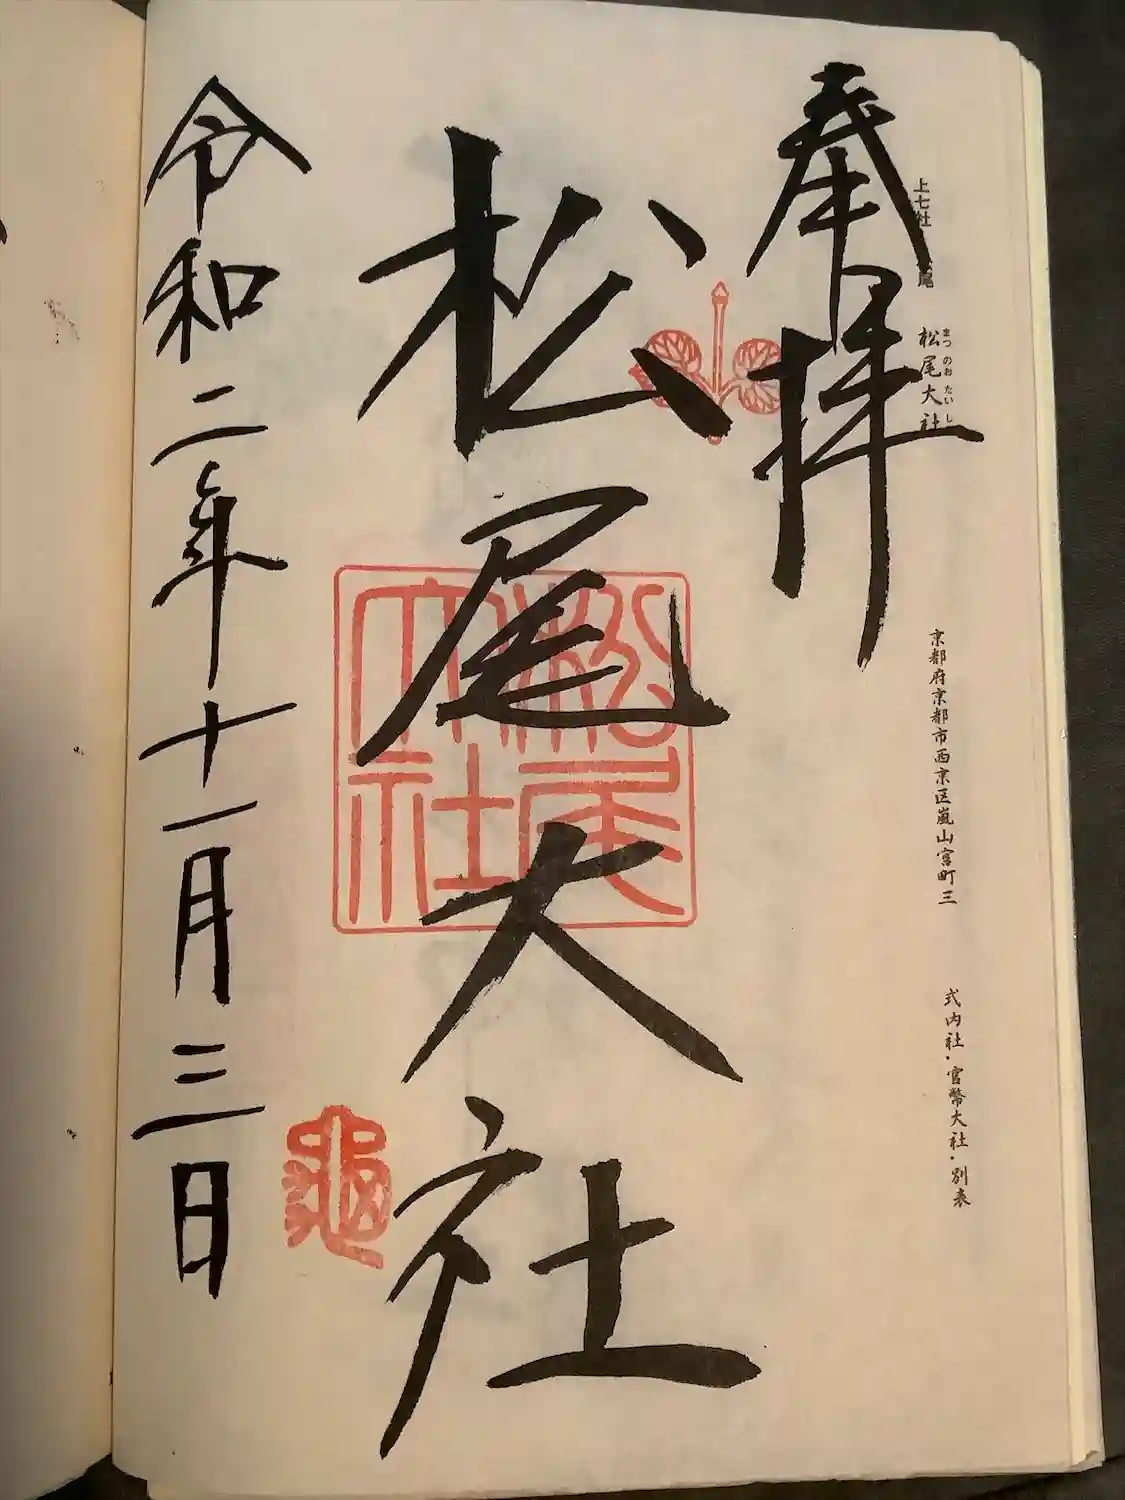 上七社
尾
松尾大社
まつのおたいし
京都府京都市西京区嵐山宮町三
式内社・官幣大社・別表
奉拝
松尾大社
松尾大社
亀
令和二年十一月三日